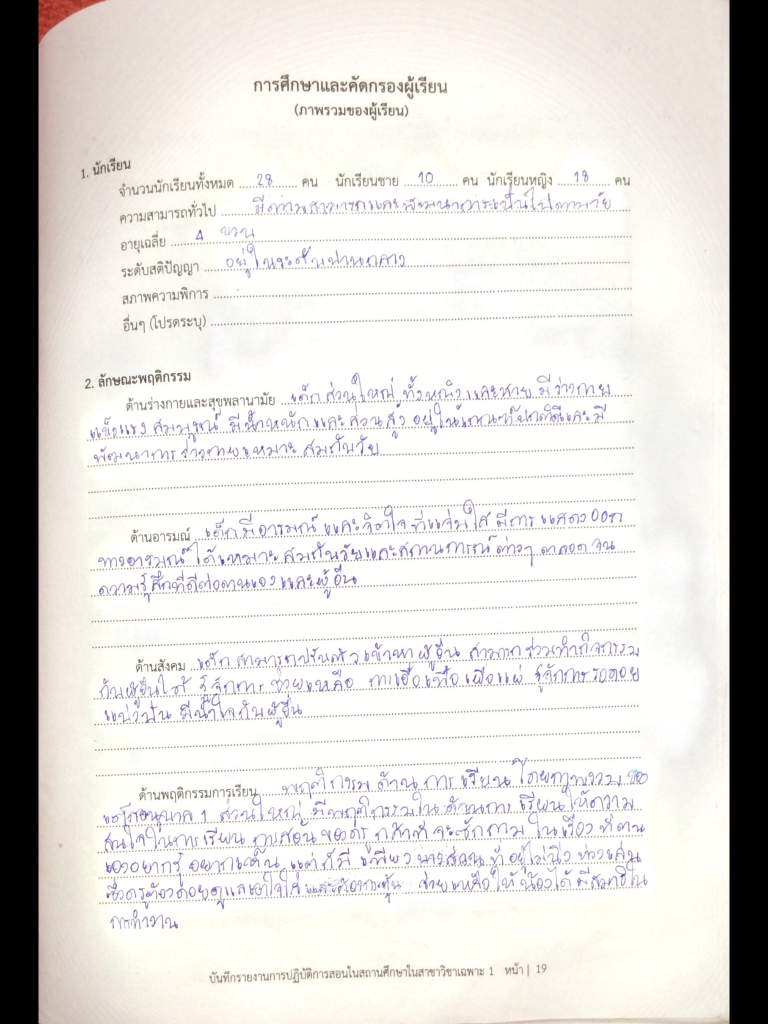 การศึกษาและคัดกรองผู้เรียน
(ภาพรวมของผู้เรียน)
1. นักเรียน
จำนวนนักเรียนทั้งหมด 28 คน นักเรียนชาย 10 คน นักเรียนหญิง 18 คน
ความสามารถทั่วไป มีความสามารถและพัฒนาการเป็นไปตามวัย
อายุเฉลี่ย 4 ขวบ
ระดับสติปัญญา อยู่ในระดับปานกลาง
สภาพความพิการ
อื่นๆ (โปรดระบุ)
2. ลักษณะพฤติกรรม
ด้านร่างกายและสุขพลานามัย เด็กส่วนใหญ่ ทั้งหญิงและชาย มีร่างกาย
แข็งแรง สมบูรณ์ มีน้ำหนักและส่วนสูง อยู่ในเกณฑ์ปกติดีและมี
พัฒนาการร่างกายเหมาะสมกับวัย
ด้านอารมณ์ เด็กมีอารมณ์และจิตใจ ที่แจ่มใส มีการแสดงออก
ทางอารมณ์ได้เหมาะสมกับวัยและสถานการณ์ต่างๆ ตลอดจน
ความรู้สึกที่ดีต่อตนเองและผู้อื่น
ด้านสังคม เด็กสามารถปรับตัวเข้าหาผู้อื่น สามารถร่วมทำกิจกรรม
กับผู้อื่นได้ รู้จักการช่วยเหลือ การเอื้อเฟื้อเผื่อแผ่ รู้จักการรอคอย
แบ่งปัน มีน้ำใจกับผู้อื่น
ด้านพฤติกรรมการเรียน พฤติกรรมด้านการเรียน โดยภาพรวมของ
อนุบาล 1 ส่วนใหญ่ มีพฤติกรรมในด้านการเรียนให้ความ
สนใจในการเรียน การสอนของครู กล้าที่จะซักถาม ในเรื่องที่ตน
เองอยากรู้ อยากเห็น แต่ก็มีเพียงบางส่วน ที่อยู่ไม่นิ่ง ห่วงเล่น
ซึ่งครูต้องคอยดูแลเอาใจใส่ และต้องกระตุ้น ช่วยเหลือให้น้องได้มีสมาธิใน
การทำงาน
บันทึกรายงานการปฏิบัติการสอนในสถานศึกษาในสาขาวิชาเฉพาะ 1 หน้า | 19